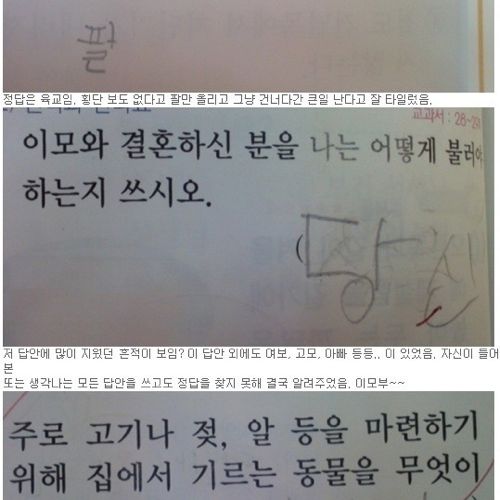 팔
정답은 육교임, 횡단 보도 없다고 팔만 올리고 그냥 건너다간 큰일 난다고 잘 타일렀음,
교과서 : 28~29
이모와 결혼하신 분을 나는 어떻게 불러야
하는지 쓰시오.
( 당신
저 답안에 많이 지웠던 흔적이 보임? 이 답안 외에도 여보, 고모, 아빠 등등,, 이 있었음, 자신이 들어
본
또는 생각나는 모든 답안을 쓰고도 정답을 찾지 못해 결국 알려주었음, 이모부~~
주로 고기나 젖, 알 등을 마련하기
위해 집에서 기르는 동물을 무엇이